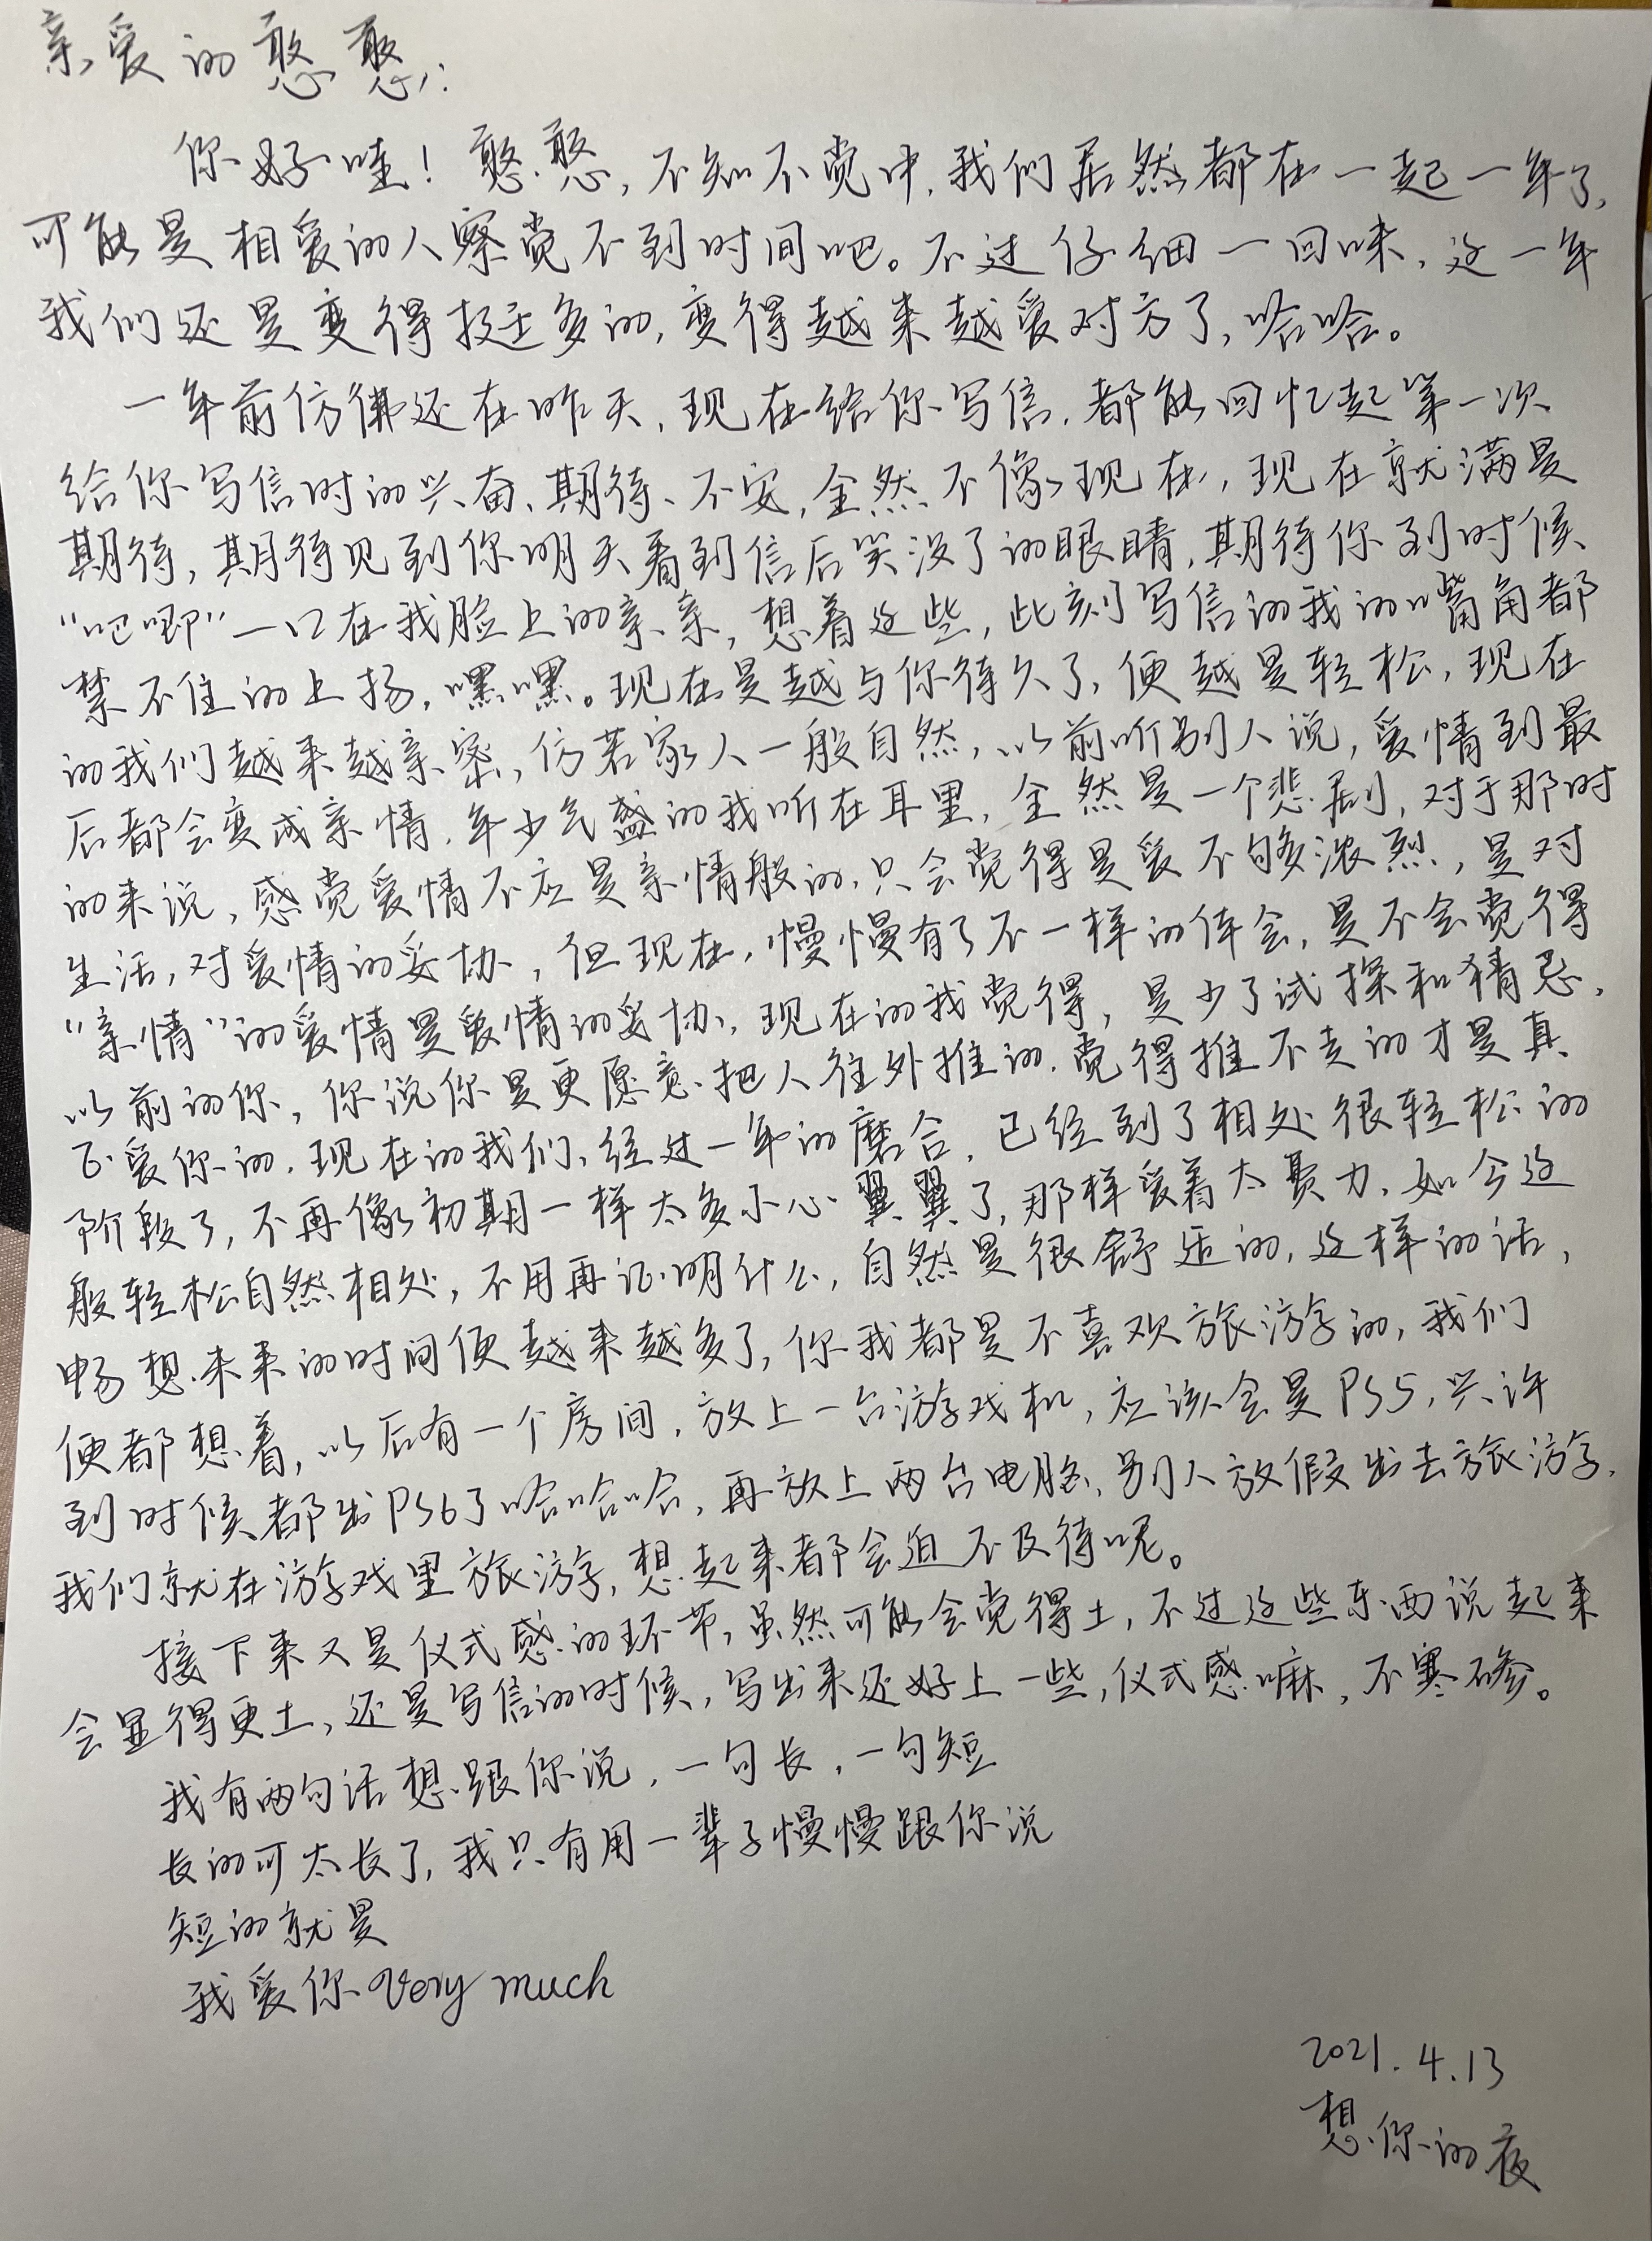 亲爱的憨憨：
你好哇！憨憨，不知不觉中，我们居然都在一起一年了，
可能是相爱的人察觉不到时间吧。不过仔细一回味，这一年
我们还是变得挺多的，变得越来越爱对方了，哈哈。
一年前仿佛还在昨天，现在给你写信，都能回忆起第一次
给你写信时的兴奋、期待、不安，全然不像现在，现在就满是
期待，期待见到你明天看到信后笑没了的眼睛，期待你到时候
“吧唧”一口在我脸上的亲亲，想着这些，此刻写信的我的嘴角都
禁不住的上扬，嘿嘿。现在是越与你待久了，便越是轻松，现在
的我们越来越亲密，仿若家人一般自然，以前听别人说，爱情到最
后都会变成亲情，年少气盛的我听在耳里，全然是一个悲剧，对于那时
的来说，感觉爱情不应是亲情般的，只会觉得是爱不够浓烈，是对
生活，对爱情的妥协，但现在，慢慢有了不一样的体会，是不会觉得
“亲情”的爱情是爱情的妥协，现在的我觉得，是少了试探和猜忌，
以前的你，你说你是更愿意把人往外推的，觉得推不走的才是真
正爱你的，现在的我们，经过一年的磨合，已经到了相处很轻松的
阶段了，不再像初期一样太多小心翼翼了，那样爱着太费力，如今这
般轻松自然相处，不用再证明什么，自然是很舒适的，这样的话，
畅想未来的时间便越来越多了，你我都是不喜欢旅游的，我们
便都想着，以后有一个房间，放上一台游戏机，应该会是PS5，兴许
到时候都出PS6了哈哈哈，再放上两台电脑，别人放假出去旅游，
我们就在游戏里旅游，想起来都会迫不及待呢。
接下来又是仪式感的环节，虽然可能会觉得土，不过这些东西说起来
会显得更土，还是写信的时候，写出来还好上一些，仪式感嘛，不寒碜。
我有两句话想跟你说，一句长，一句短
长的可太长了，我只有用一辈子慢慢跟你说
短的就是
我爱你 very much
2021.4.13
想你的夜